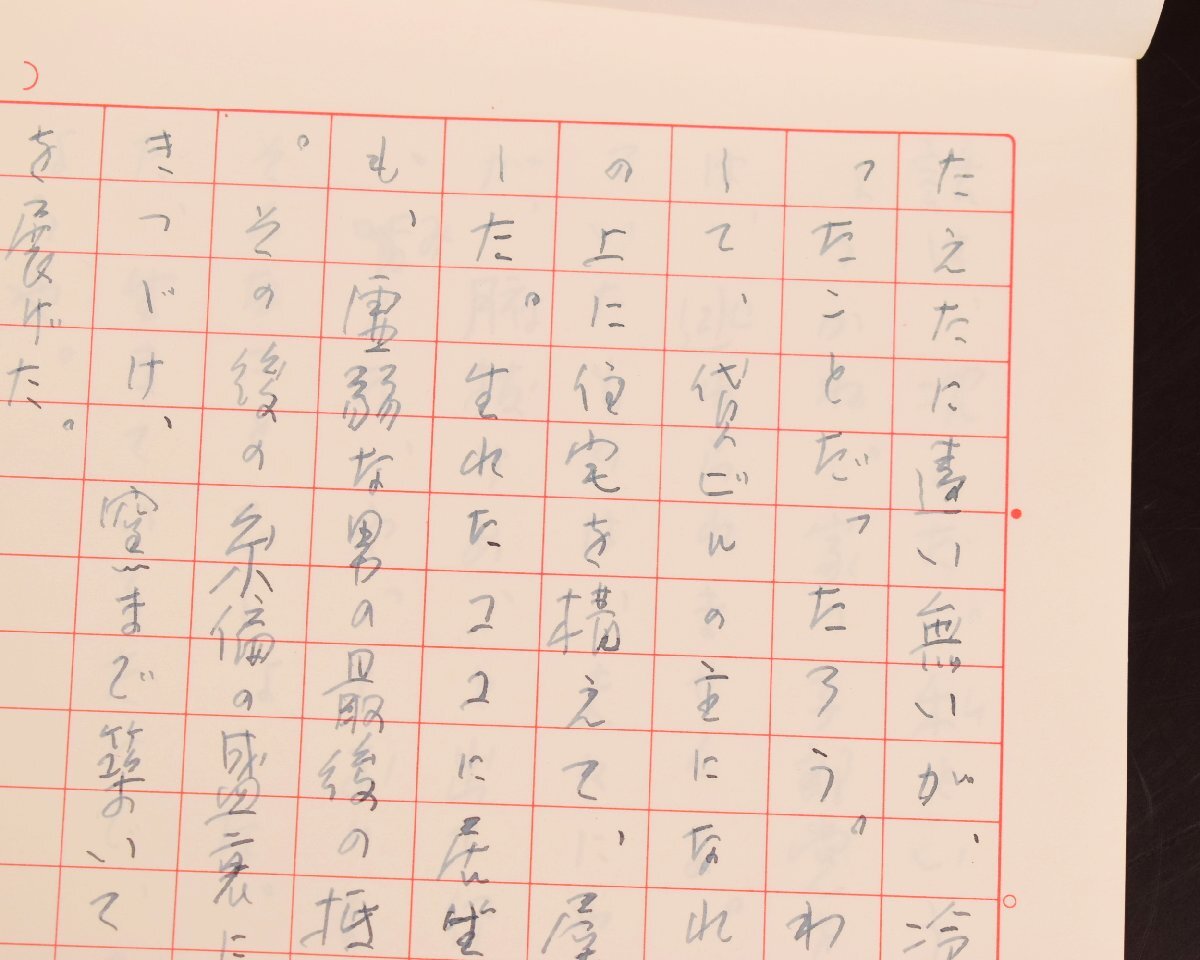 たえたに違い無いが、冷
ったことだったろう。わ
して、貸ビルの主になれ
の上に住宅を構えて、屋
した。生れたココに居坐
も、虚弱な男の最後の抵
。その後の糸偏の盛衰に
きつゞけ、窯まで築いて
を展げた。